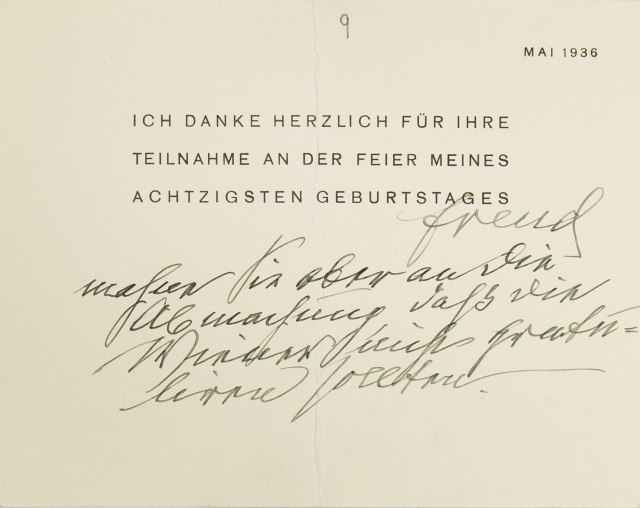 9
MAI 1936
ICH DANKE HERZLICH FÜR IHRE
TEILNAHME AN DER FEIER MEINES
ACHTZIGSTEN GEBURTSTAGES
Freud
mahne Sie aber an die
Abmachung daß die
Wiener nicht gratu=
liren sollten.